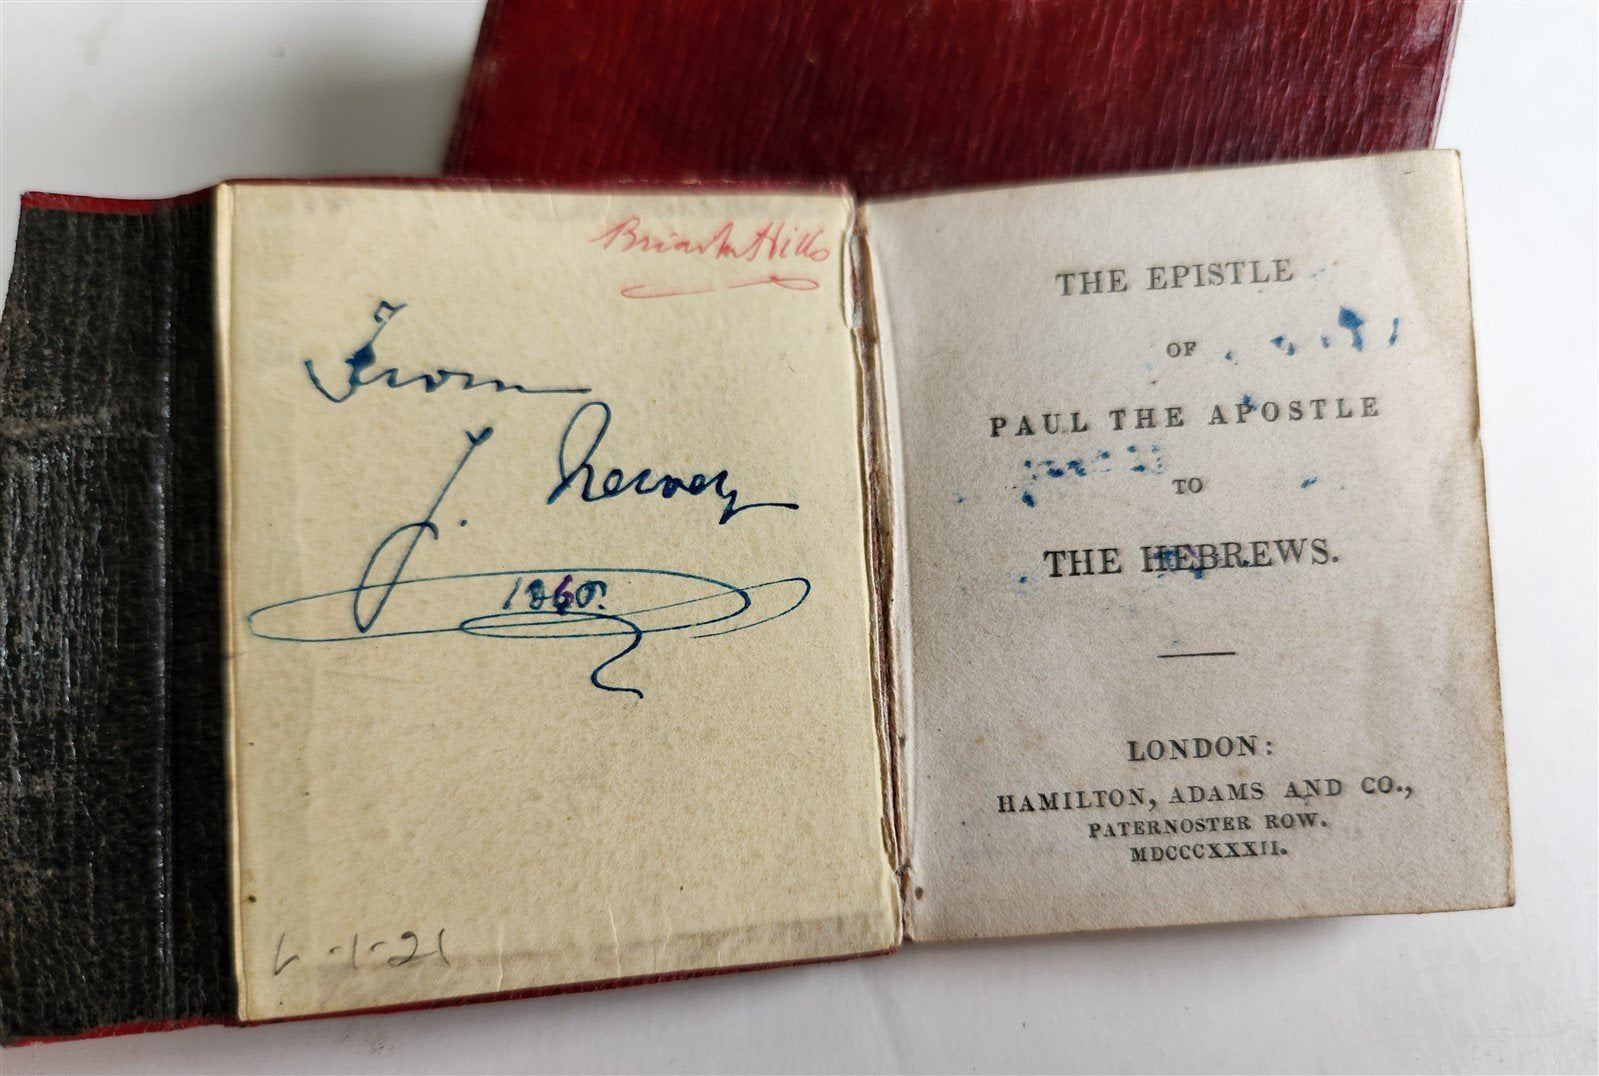 From
J.
1860.
THE EPISTLE
OF
PAUL THE APOSTLE
TO
THE HEBREWS.
LONDON:
HAMILTON, ADAMS AND CO.,
PATERNOSTER ROW.
MDCCCXXXII.